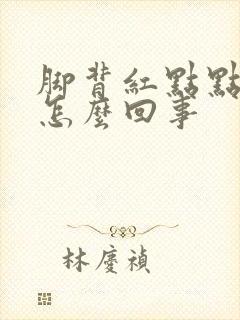 脚背紅點點
怎麼回事
林慶禎